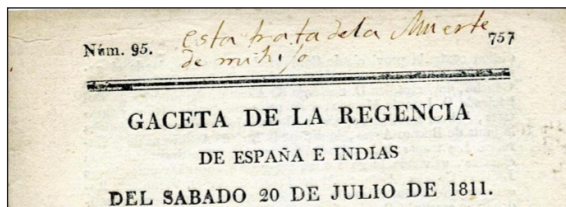 Núm. 95. esta trata dela Muerte 757
de mi hijo
GACETA DE LA REGENCIA
DE ESPAÑA E INDIAS
DEL SABADO 20 DE JULIO DE 1811.